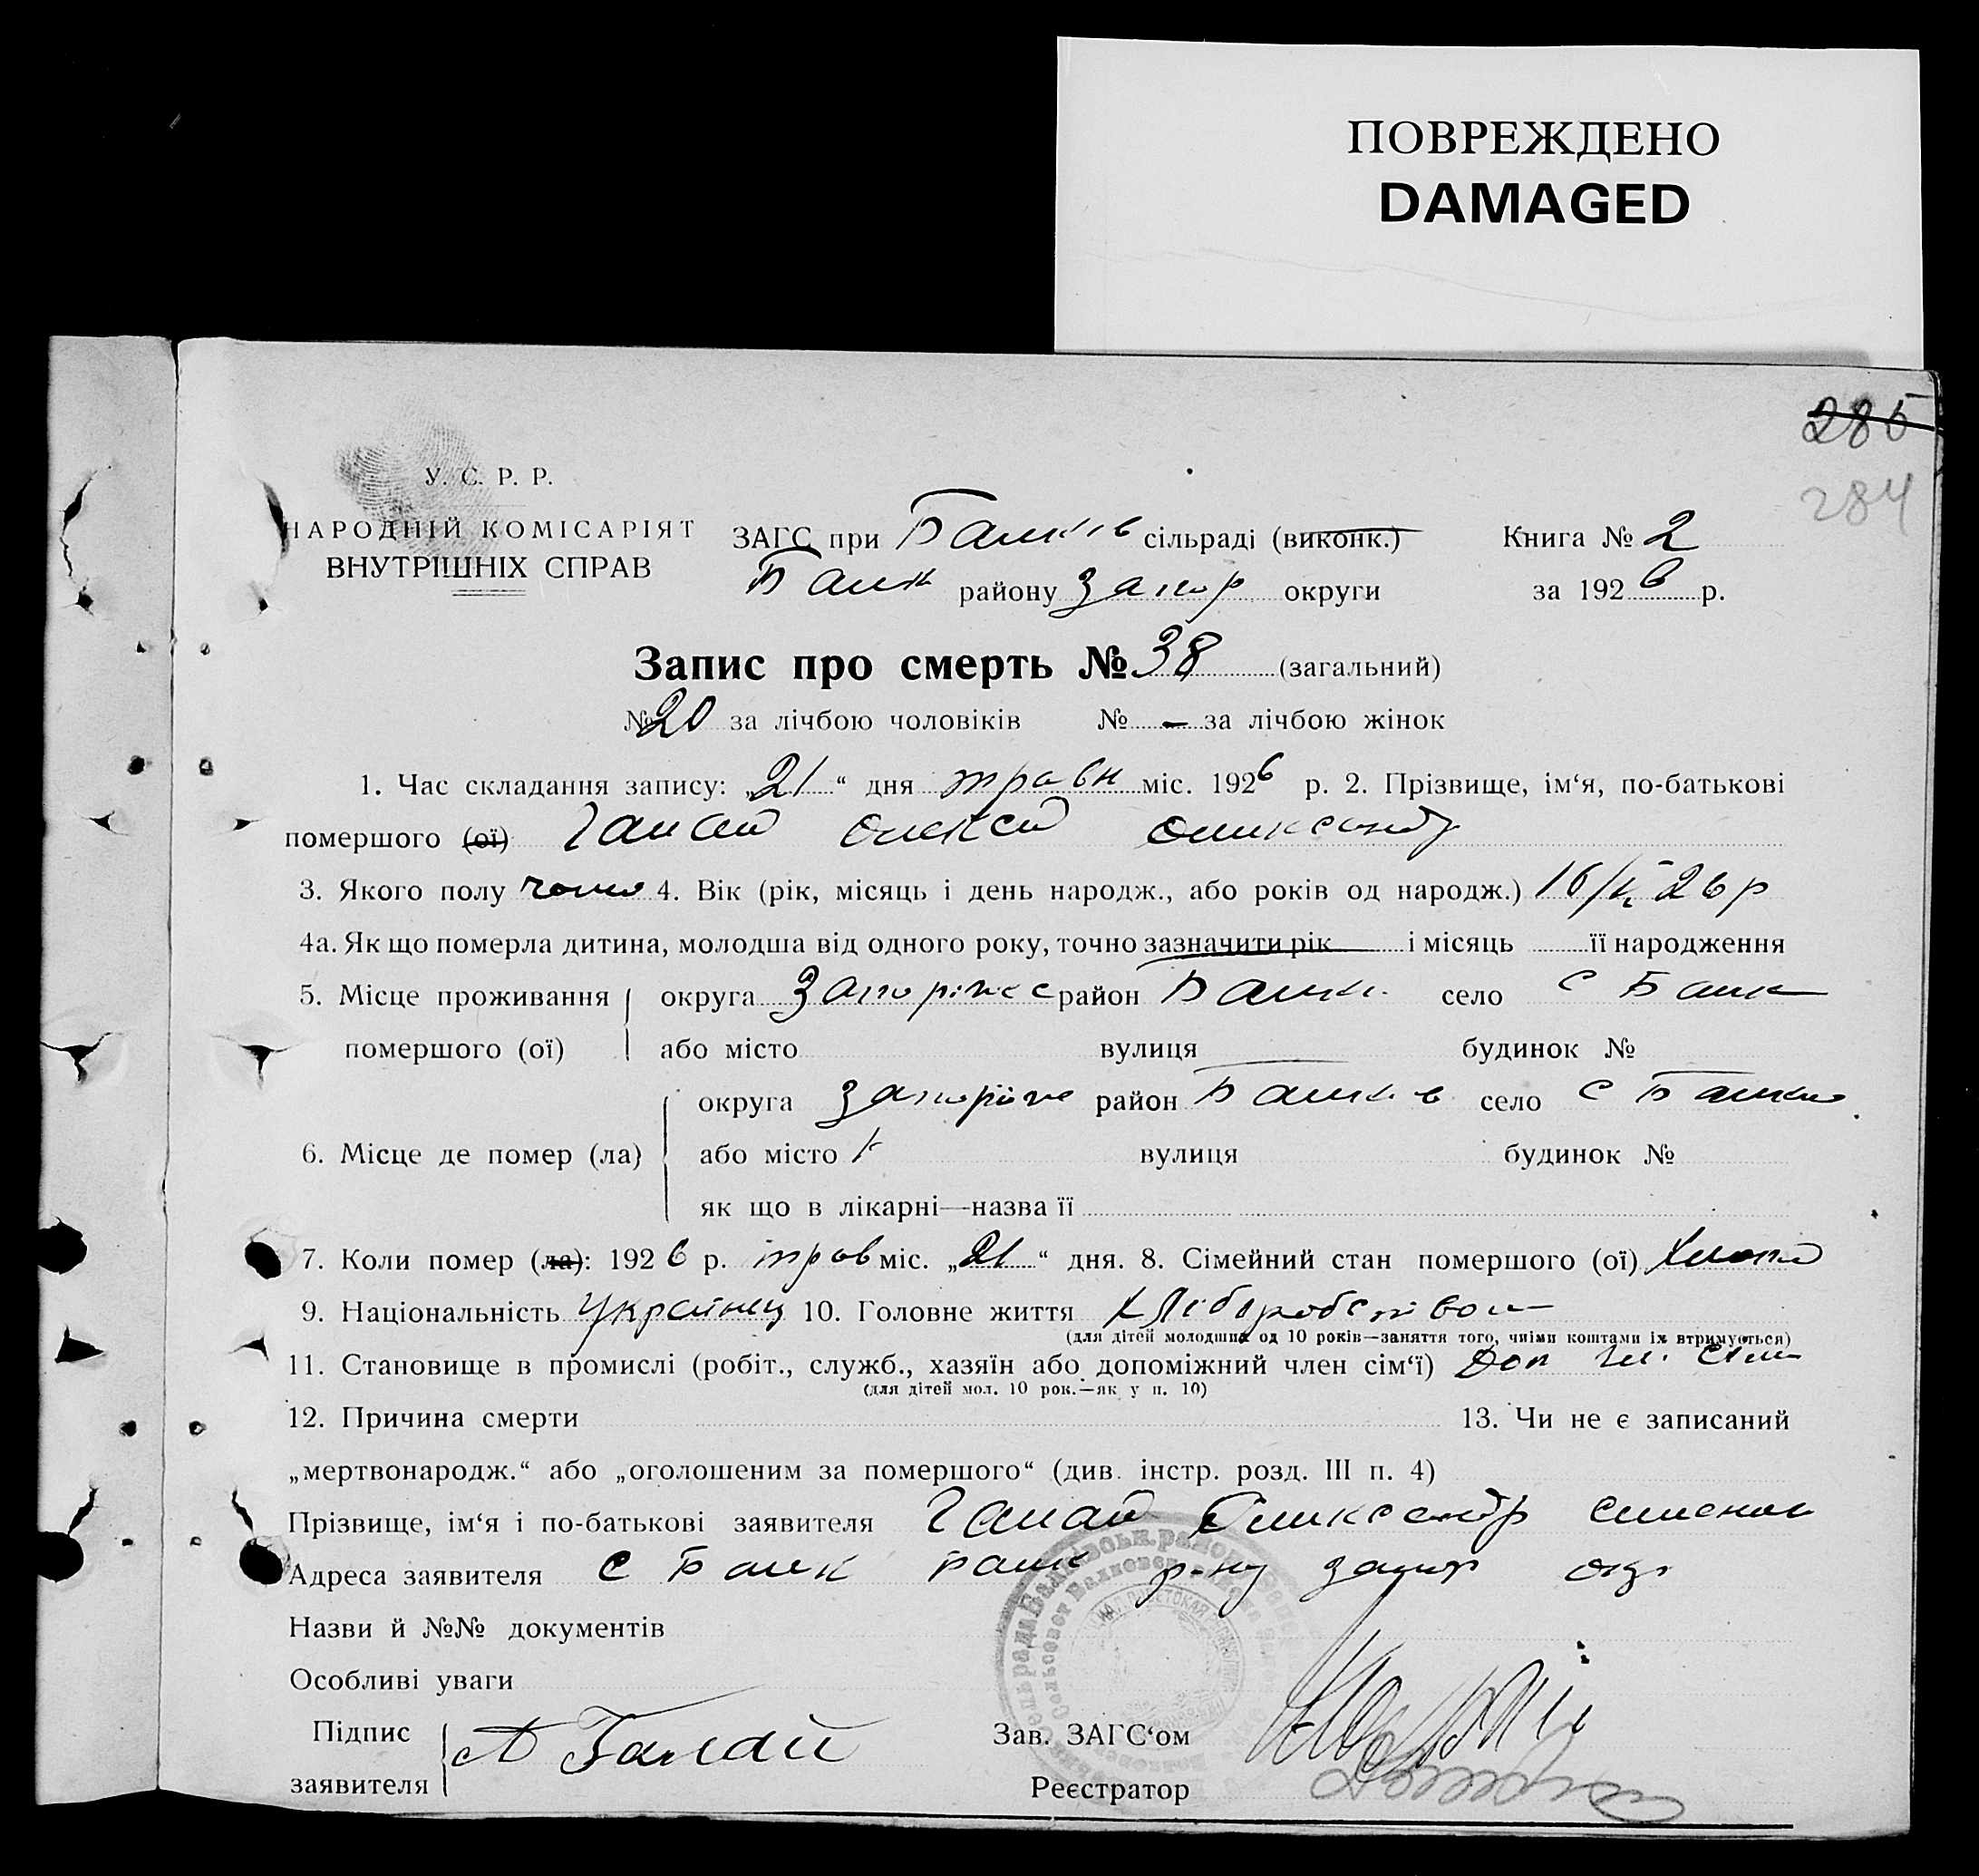 ПОВРЕЖДЕНО
DAMAGED
285
284
У. С. Р. Р.
НАРОДНІЙ КОМІСАРІЯТ
ВНУТРІШНІХ СПРАВ
ЗАГС при Балків сільраді (виконк.)
Балк району Запор округи
Книга № 2
за 1926 р.
Запис про смерть № 38 (загальний)
№ 20 за лічбою чоловіків № — за лічбою жінок
1. Час складання запису: „21“ дня травн міс. 1926 р. 2. Прізвище, ім‘я, по-батькові
помершого (ої) Галай Олексій Олександр
3. Якого полу чолов 4. Вік (рік, місяць і день народж., або років од народж.) 26 р
4а. Як що померла дитина, молодша від одного року, точно зазначити рік і місяць її народження
5. Місце проживання округа Запоріжс район Балк. село С Балк
помершого (ої) або місто вулиця будинок №
округа Запоріж район Балків село С Балки
6. Місце де помер (ла) або місто вулиця будинок №
як що в лікарні—назва її
7. Коли помер (ла): 1926 р. трав міс. „21“ дня. 8. Сімейний стан помершого (ої)
9. Національність Українец 10. Головне життя Хліборобством
(для дітей молодших од 10 років—заняття того, чиїми коштами їх втримуються)
11. Становище в промислі (робіт., служб., хазяїн або допоміжний член сім‘ї) Доп чл. сім
(для дітей мол. 10 рок.—як у п. 10)
12. Причина смерти 13. Чи не є записаний
„мертвонародж.“ або „оголошеним за помершого“ (див. інстр. розд. III п. 4)
Прізвище, ім‘я і по-батькові заявителя Галай Олександр Семенов
Адреса заявителя С Балк Балк р-ну Запор окр
Назви й №№ документів
Особливі уваги
Підпис
заявителя А Галай
Зав. ЗАГС‘ом
Реєстратор